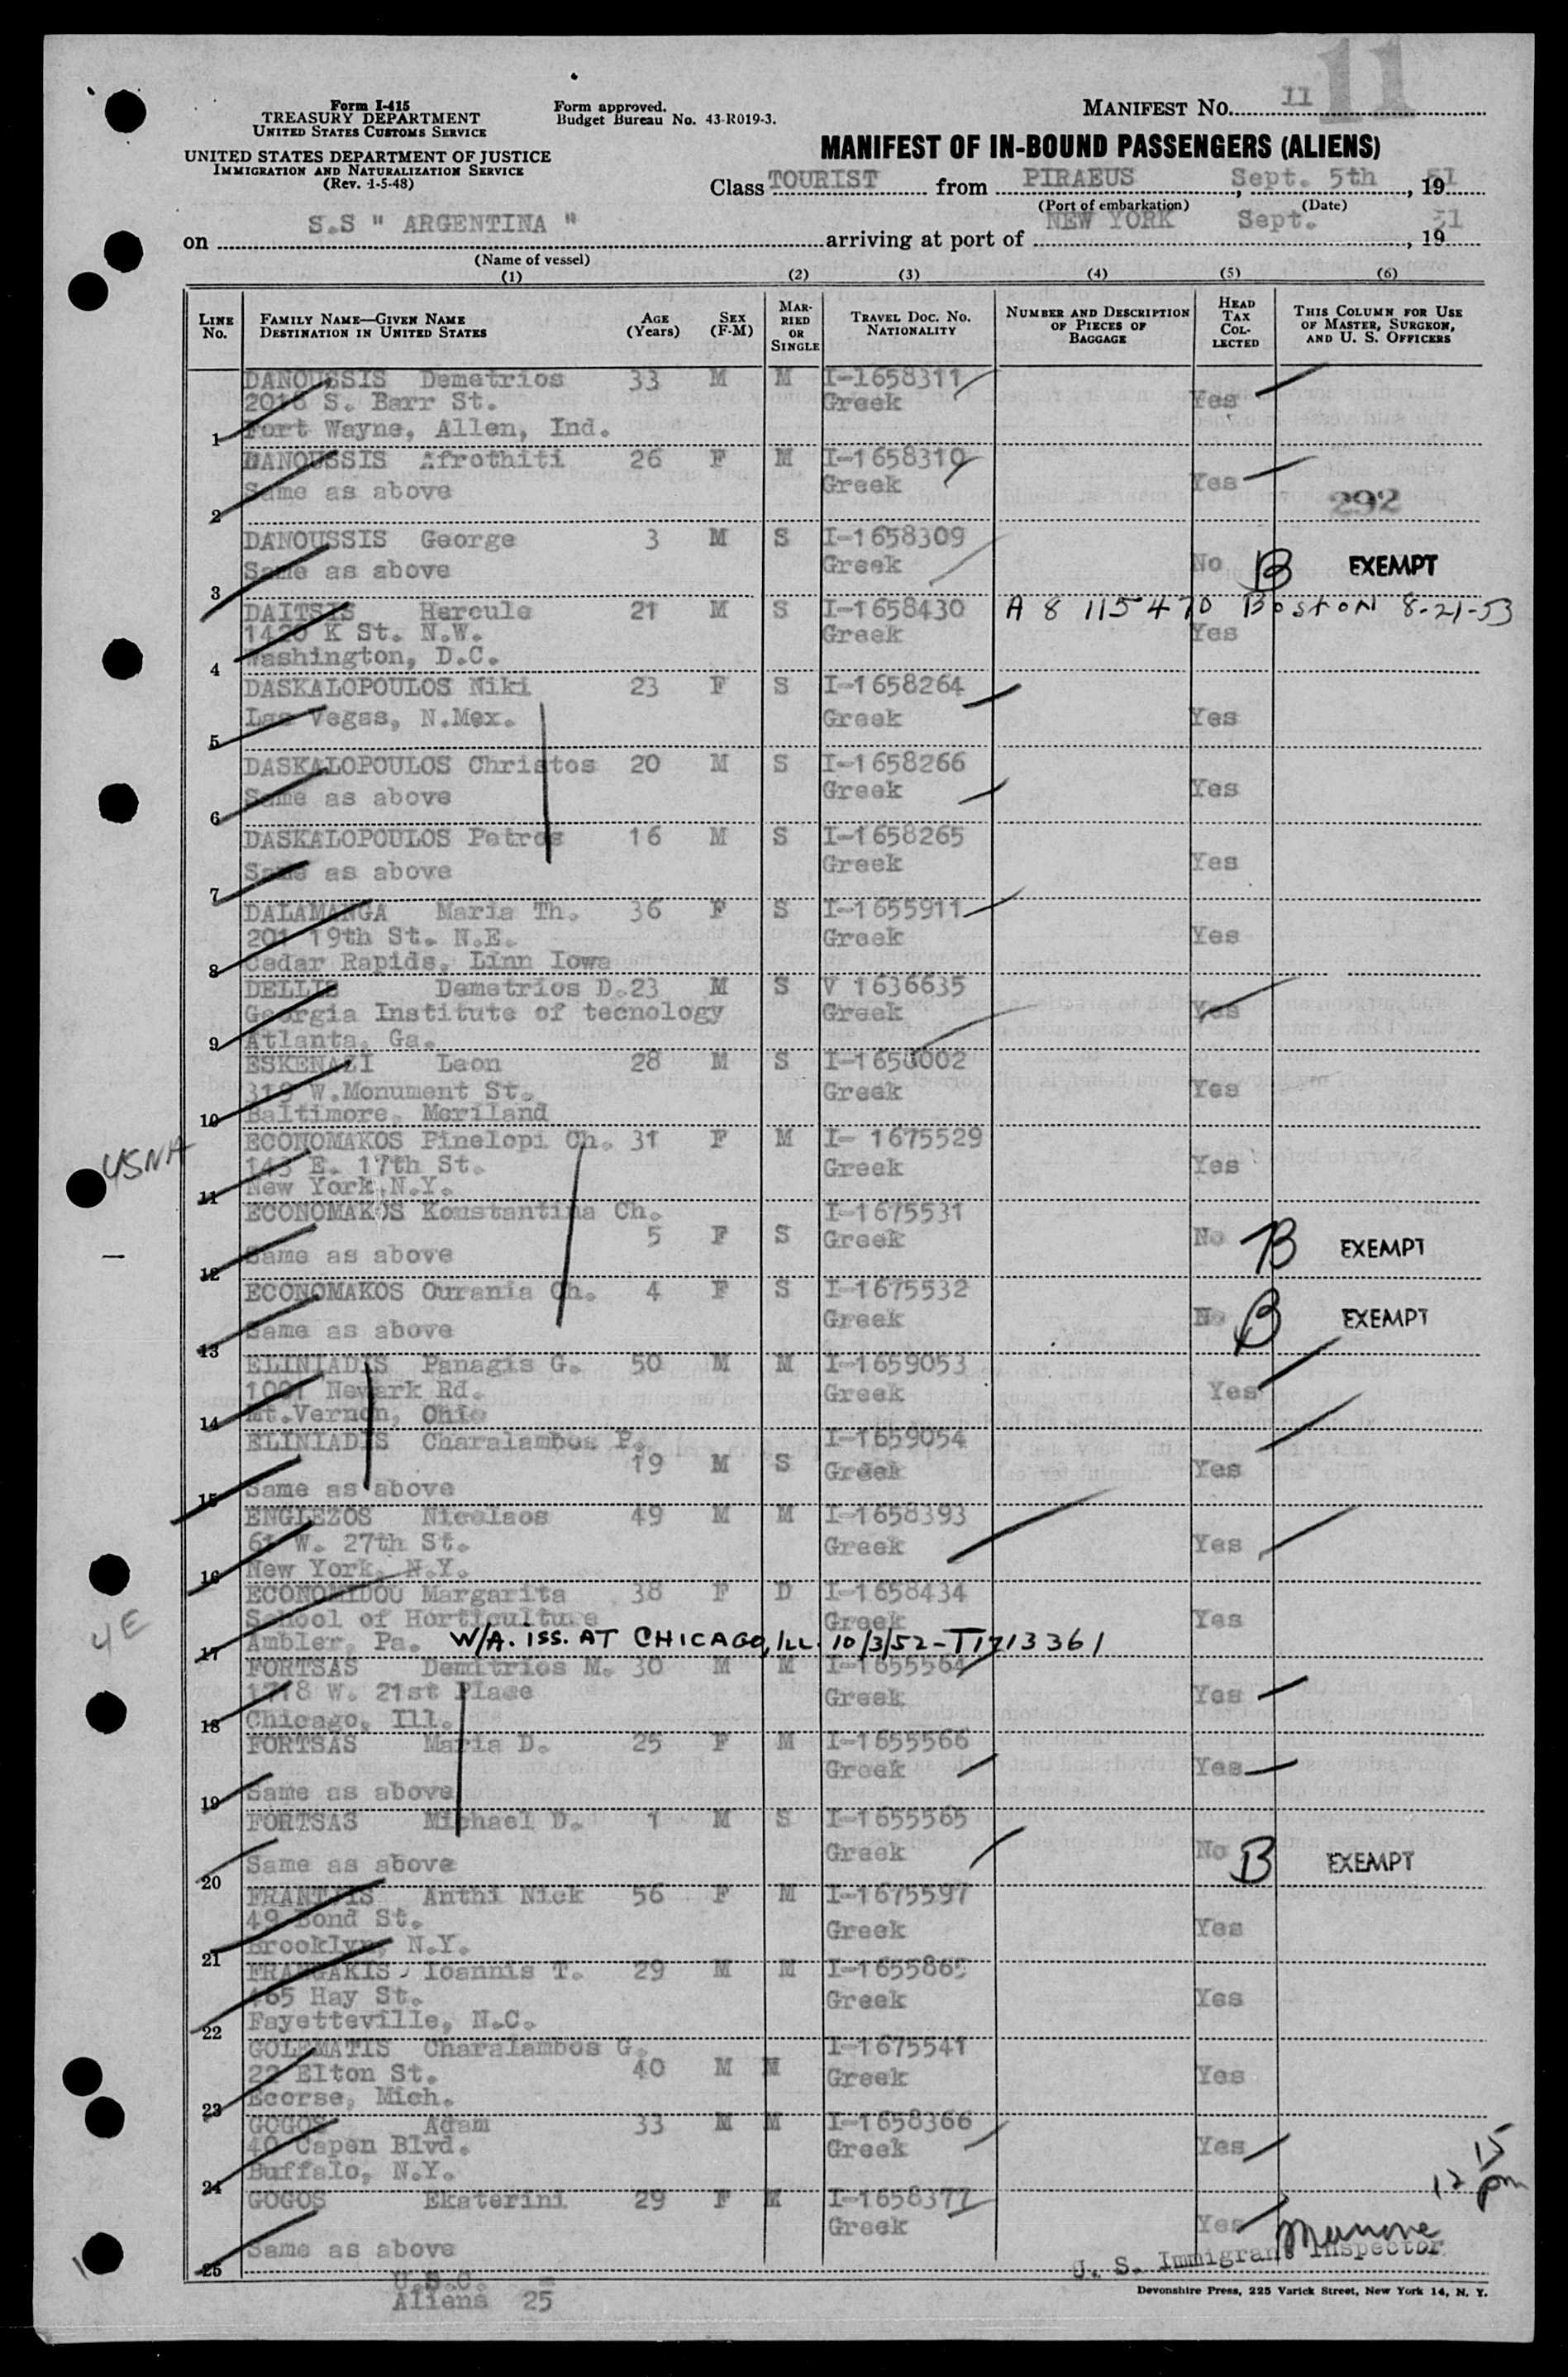 11
Form I-415
TREASURY DEPARTMENT
UNITED STATES CUSTOMS SERVICE
UNITED STATES DEPARTMENT OF JUSTICE
IMMIGRATION AND NATURALIZATION SERVICE
(Rev. 1-5-48)
Form approved.
Budget Bureau No. 43-R019-3.
MANIFEST No. 11
MANIFEST OF IN-BOUND PASSENGERS (ALIENS)
Class TOURIST from PIRAEUS, Sept. 5th, 1951
(Port of embarkation) (Date)
on S.S " ARGENTINA " arriving at port of NEW YORK Sept., 1951
(Name of vessel)
(1) (2) (3) (4) (5) (6)
LINE No. FAMILY NAME—GIVEN NAME DESTINATION IN UNITED STATES AGE (Years) SEX (F-M) MARRIED OR SINGLE TRAVEL DOC. NO. NATIONALITY NUMBER AND DESCRIPTION OF PIECES OF BAGGAGE HEAD TAX COLLECTED THIS COLUMN FOR USE OF MASTER, SURGEON, AND U. S. OFFICERS
DANOUSSIS Demetrios 33 M M I-1658311
2018 S. Barr St. Greek Yes
1 Fort Wayne, Allen, Ind.
DANOUSSIS Afrothiti 26 F M I-1658310
Same as above Greek Yes
2 292
DANOUSSIS George 3 M S I-1658309
Same as above Greek No B EXEMPT
3
DAITSIS Hercule 21 M S I-1658430 A 8 115470 BostoN 8-21-53
1420 K St. N.W. Greek Yes
4 Washington, D.C.
DASKALOPOULOS Niki 23 F S I-1658264
5 Las Vegas, N.Mex. Greek Yes
DASKALOPOULOS Christos 20 M S I-1658266
6 Same as above Greek Yes
DASKALOPOULOS Petros 16 M S I-1658265
7 Same as above Greek Yes
DALAMANGA Maria Th. 36 F S I-1655911
201 19th St. N.E. Greek Yes
8 Cedar Rapids, Linn Iowa
DELLIS Demetrios D. 23 M S V 1636635
Georgia Institute of tecnology Greek Yes
9 Atlanta, Ga.
ESKENAZI Leon 28 M S
319 W.Monument St. Greek Yes
10 Baltimore, Meriland
ECONOMAKOS Pinelopi Ch. 31 F M I- 1675529
USNA 143 E. 17th St. Greek Yes
11 New York,N.Y.
ECONOMAKOS Konstantina Ch. I-1675531
5 F S Greek No B EXEMPT
12 Same as above
ECONOMAKOS Ourania Ch. 4 F S I-1675532
13 Same as above Greek No B EXEMPT
ELINIADIS Panagis G. 50 M M I-1659053
1001 Newark Rd. Greek Yes
14 Mt.Vernon, Ohio
ELINIADIS Charalambos P. I-1659054
19 M S Greek Yes
15 Same as above
ENGLEZOS Nicolaos 49 M M I-1658393
61 W. 27th St. Greek Yes
16 New York, N.Y.
ECONOMIDOU Margarita 38 F D I-1658434
4E School of Horticulture Greek Yes
17 Ambler, Pa. W/A. iss. AT CHICAGO, ILL. 10/3/52-T1713361
FORTSAS Demitrios M. 30 M M I-1655564
1718 W. 21st Place Greek Yes
18 Chicago, Ill.
FORTSAS Maria D. 25 F M I-1655566
19 Same as above Greek Yes
FORTSAS Michael D. 1 M S I-1655565
20 Same as above Greek No B EXEMPT
FRANTJIS Anthi Nick 56 F M I-1675597
49 Bond St. Greek Yes
21 Brooklyn, N.Y.
FRANGAKIS Ioannis T. 29 M M I-1655865
465 Hay St. Greek Yes
22 Fayetteville, N.C.
GOLEMATIS Charalambos G. I-1675541
22 Elton St. 40 M M Greek Yes
23 Ecorse, Mich.
GOGOS Adam 33 M M I-1658366
40 Capen Blvd. Greek Yes
24 Buffalo, N.Y. 12 15 pm
GOGOS Ekaterini 29 F M I-1658377
Greek Yes
25 Same as above
U. S. Immigrant Inspector
U.S.C. -
Aliens 25
Devonshire Press, 225 Varick Street, New York 14, N. Y.